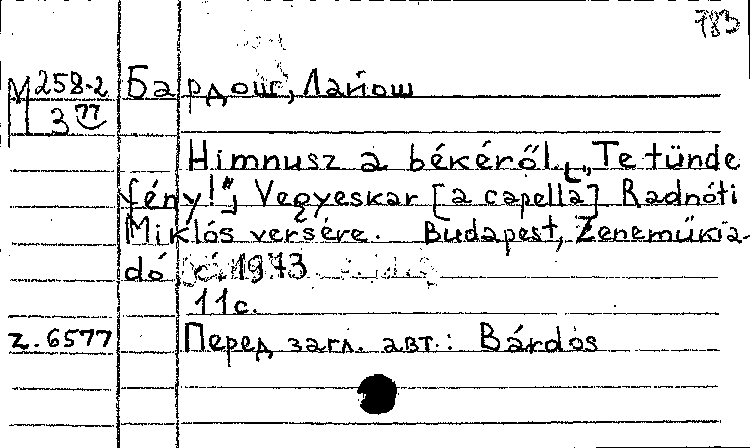 783
М 258-2 Бардош, Лайош
3 77
Himnusz a békéről. [„Te tünde
fény!”] Vegyeskar [a capella] Radnóti
Miklós versére. Budapest, Zeneműkia-
dó, c. 1973
11с.
Z. 6577 Перед загл. авт.: Bárdos